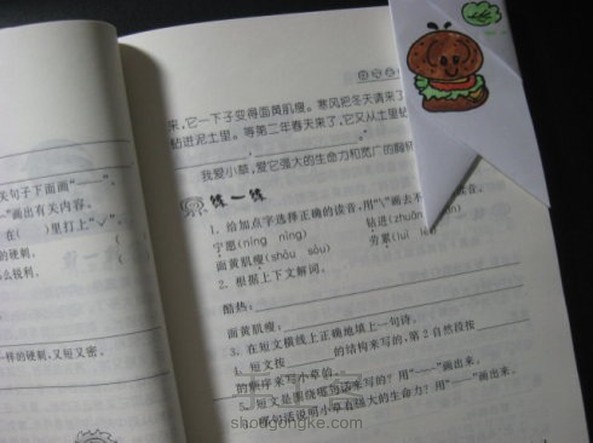 关句子下面画"——"。
"画出有关内容。
在（　）里打上"√"。
的硬刺。（
么锐利。（
一样的硬刺，又短又密。
来，它一下子变得面黄肌瘦。寒风把冬天请来了
钻进泥土里。等第二年春天来了，它又从土里钻
，。"
我爱小草，爱它强大的生命力和宽广的胸怀
练一练
1. 给加点字选择正确的读音，用"\"画去不 读音。
宁愿(níng nìng) 钻进(zhuān
面黄肌瘦(shòu sòu) 劳累(
2. 根据上下文解词。
酷热：
面黄肌瘦：
3. 在短文横线上正确地填上一句诗。
4. 短文按 的结构来写的，第2自然段按
的顺序来写小草的。
5. 短文是围绕哪句话来写的？用"﹏﹏"画出来。
哪句话说明小草有强大的生命力？用"——"画出来。
shougongke.com